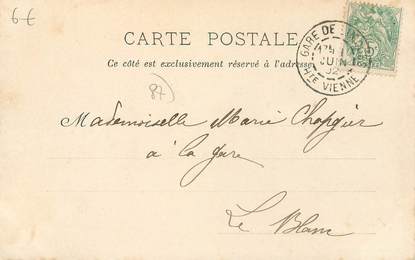 6€
CARTE POSTALE
Ce côté est exclusivement réservé à l'adresse
GARE DE
JUIN
02
Hte VIENNE
87
Mademoiselle Marie
à la gare
Le Blanc